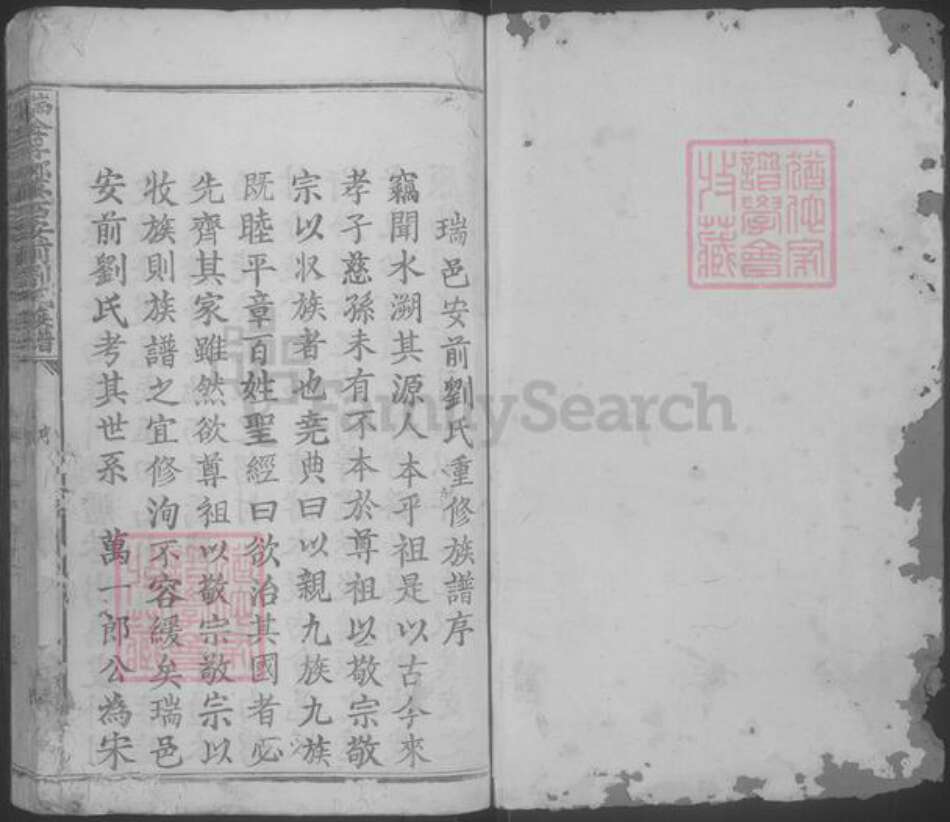 瑞邑安前劉氏重修族譜序
竊聞水溯其源人本乎祖是以古今來
孝子慈孫未有不本於尊祖以敬宗敬
宗以収族者也堯典曰以親九族九族
既睦平章百姓聖經曰欲治其國者必
先齊其家雖然欲尊祖以敬宗敬宗以
收族則族譜之宜修洵不容緩矣瑞邑
安前劉氏考其世系 萬一郎公為宋
安前劉氏族譜
FamilySearch
譜學會
收藏